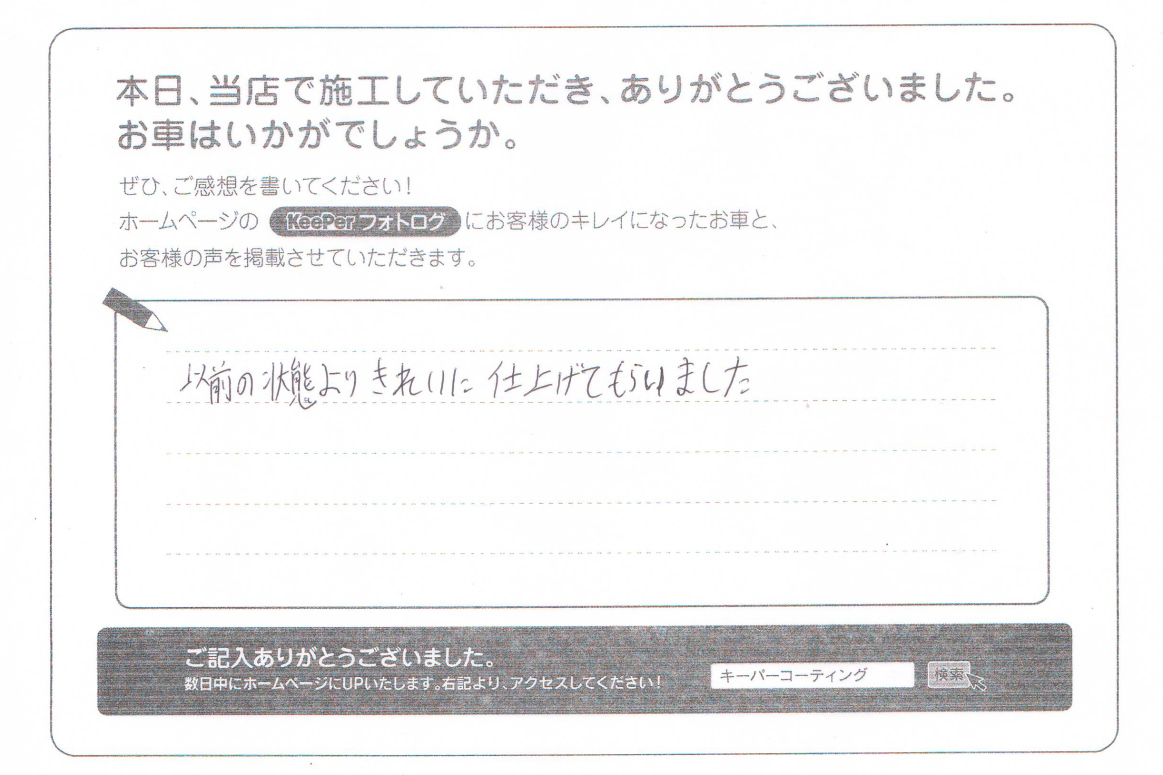 本日、当店で施工していただき、ありがとうございました。
お車はいかがでしょうか。
ぜひ、ご感想を書いてください!
ホームページの KeePer フォトログ にお客様のキレイになったお車と、
お客様の声を掲載させていただきます。
以前の状態よりきれいに仕上げてもらいました
ご記入ありがとうございました。
数日中にホームページにUPいたします。右記より、アクセスしてください!
キーパーコーティング 検索